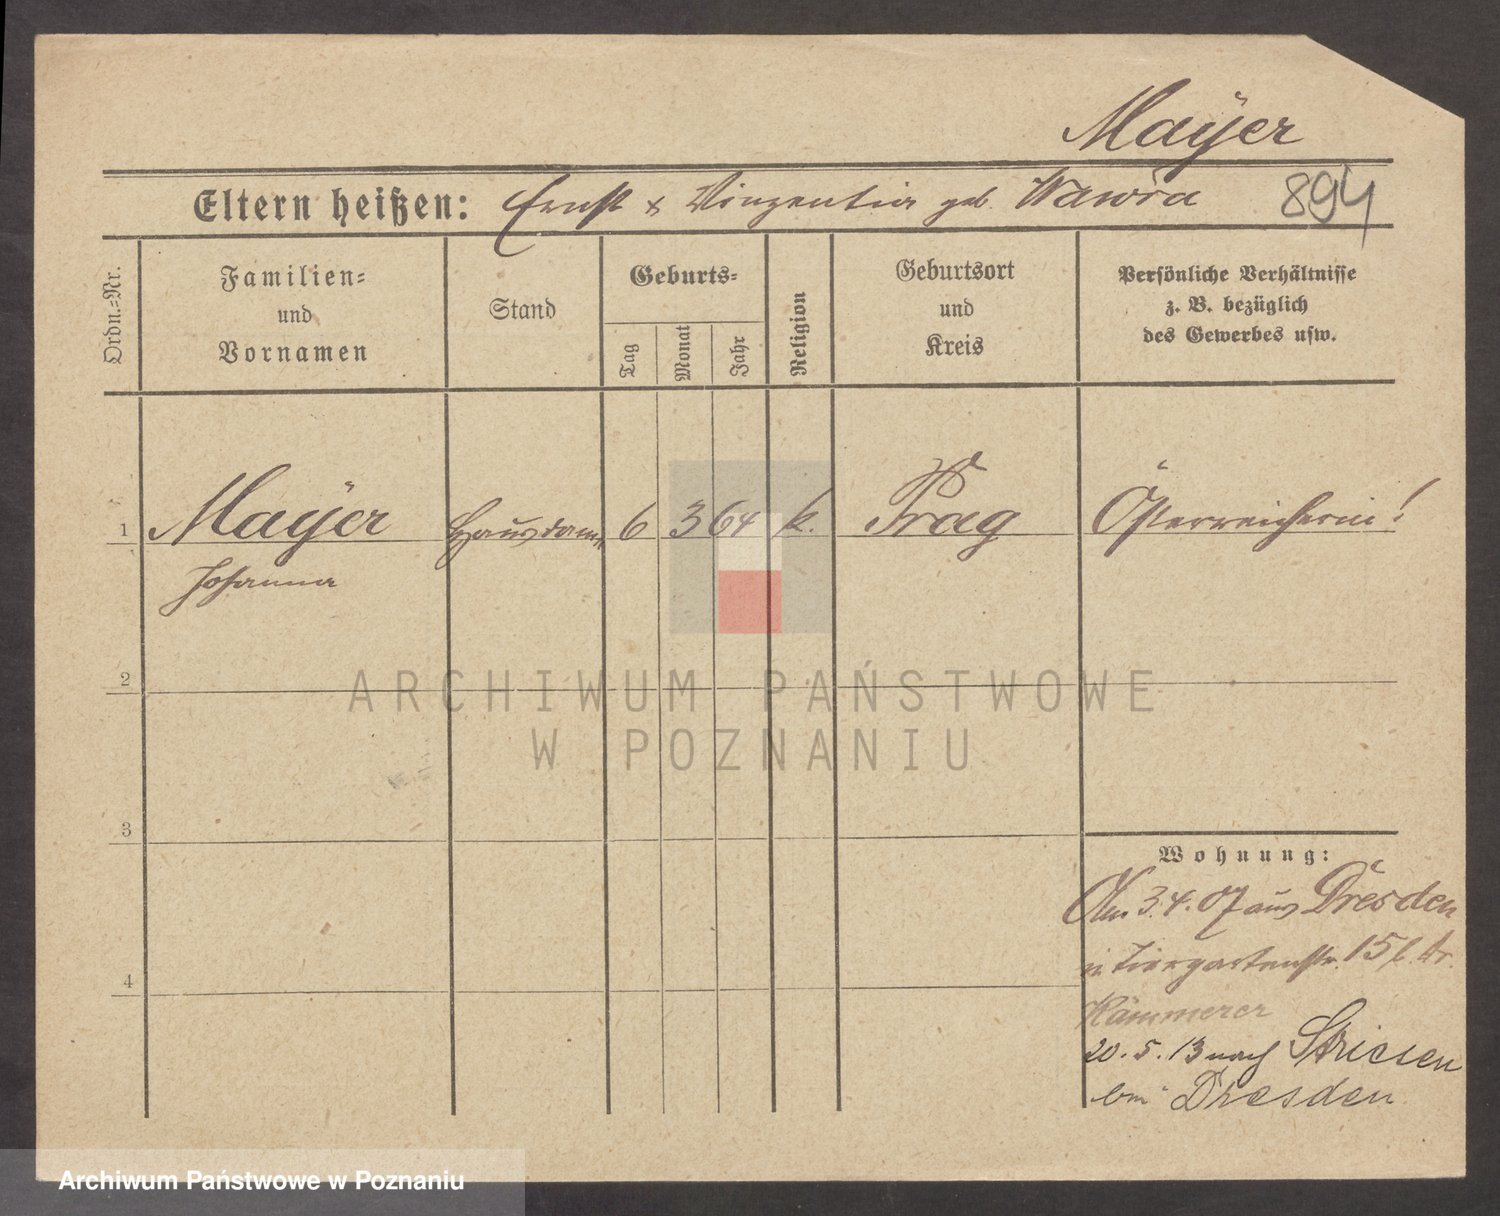 Mayer
Eltern heißen: Ernst & Vinzentia geb. Wawra 894
Ordn.-Nr.
Familien-
und
Vornamen
Stand
Geburts-
Tag
Monat
Jahr
Religion
Geburtsort
und
Kreis
Persönliche Verhältnisse
z. B. bezüglich
des Gewerbes usw.
1 Mayer Hausdame 6 3 64 k. Prag Österreicherin!
Johanna
2
ARCHIWUM PAŃSTWOWE
W POZNANIU
3
Wohnung:
3.4.07 aus Dresden
Tiergartenstr. 15
Kämmerer
4
20.5.13 nach Striesen
bei Dresden
Archiwum Państwowe w Poznaniu